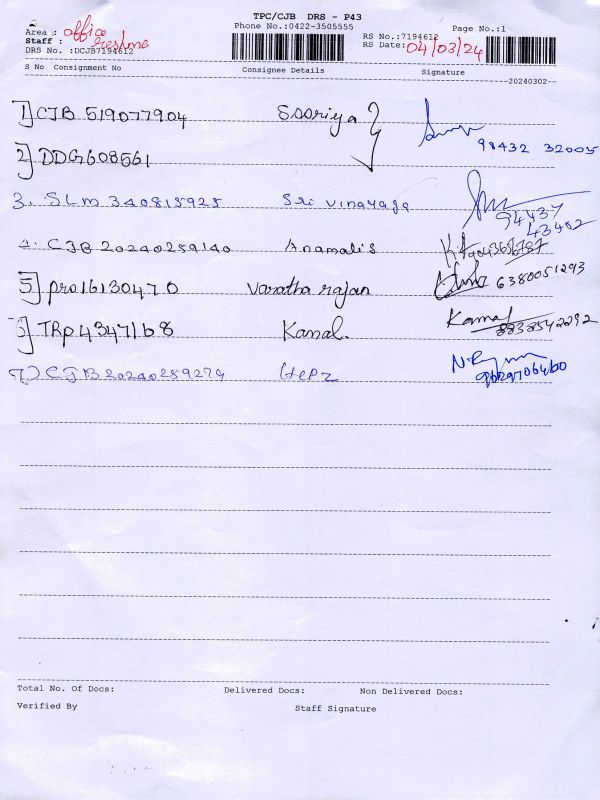 TPC/CJB DRS - P43
Phone No.:0422-3505555
Page No.:1
Area : office
Staff : Reshma
DRS No. :DCJB7194612
RS No.:7194612
RS Date: 04/03/24
S No Consignment No Consignee Details Signature
20240302
1] CJB 519077904 Sooriya
98432 32005
2] DDG608561
3. SLM 340815925 Sri vinayaga
94437 43402
4. CJB 20240259140 Anamalis
5] pro16130470 Varatha rajan 6380051293
6] TRP 4347168 Kamal. Kamal 8838542292
7) CJB 20240259274
Total No. Of Docs: Delivered Docs: Non Delivered Docs:
Verified By Staff Signature